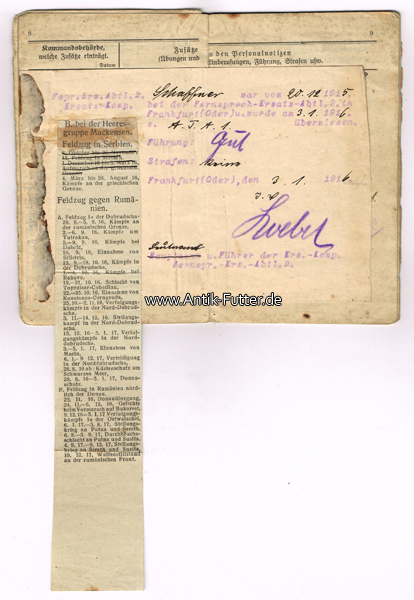 8
9
Kommandobehörde,
welche Zusätze einträgt.
Datum
Zusätze
(Übungen und
zu den Personalnotizen
Einberufungen, Führung, Strafen usw.
Fepr.Ers.Abtl.2.
Ersatz-Komp.
Schaffner war vom 20.12.1915
bei der Fernsprech-Ersatz-Abtl.2.in
Frankfurt(Oder)u.wurde am 3.1.1916
z. A.F.A.1. überwiesen.
Führung: Gut
Strafen: keine
Frankfurt(Oder),den 3. 1. 1916
u.Führer der Ers.-Komp.
Fernspr.-Ers.-Abtl.2.
B. bei der Heeres-
gruppe Mackensen.
Feldzug in Serbien.
4. März bis 28. August 16,
Kämpfe an der griechischen
Grenze.
Feldzug gegen Rumä-
nien.
A. Feldzug in der Dobrudscha:
28. 8.—5. 9. 16, Kämpfe an
der rumänischen Grenze,
2.—6. 9. 16, Kämpfe um
Tutrakan,
Dobric,
Silistria,
Kämpfe
in der Dobrudscha,
Kämpfe bei
Rahovo,
19.—21. 10. 16, Schlacht von
Topraisar-Cobadinu,
22.—20. 10. 16, Einnahme von
Konstanza-Cernavoda,
Verfol-
gungskämpfe in der Nord-
dobrudscha,
3. 11.—14. 12. 16, Stellungs-
kampf in der Nord-Dobrud-
scha,
15. 12. 16 - 5. 1. 17, Verfol-
gungskämpfe in der Nord-
dobrudscha,
3.—5. 1. 17, Einnahme von
Macin,
6. 1.—9. 12. 17, Verteidigung
in der Norddobrudscha,
Küstenschutz am
Schwarzen Meer,
28. 8. 16—5. 1. 17, Donau-
schutz.
F. Feldzug in Rumänien nörd-
lich der Donau.
23. 11. 16, Donauübergang,
24. 11.—6. 12. 16, Gefechte
beim Vormarsch auf Bukarest,
Verfolgungs-
kämpfe in der Ostwalachei,
Stellungs-
krieg an Putna und Susita,
6. 8.—3. 9. 17, Durchbruchs-
schlacht an Putna und Susita,
4. 9. 17.—9. 12. 17, Stellungs-
krieg an Sereth und Susita,
10. 12. 17, Waffenstillstand
an der rumänischen Front.
www.Antik-Futter.de